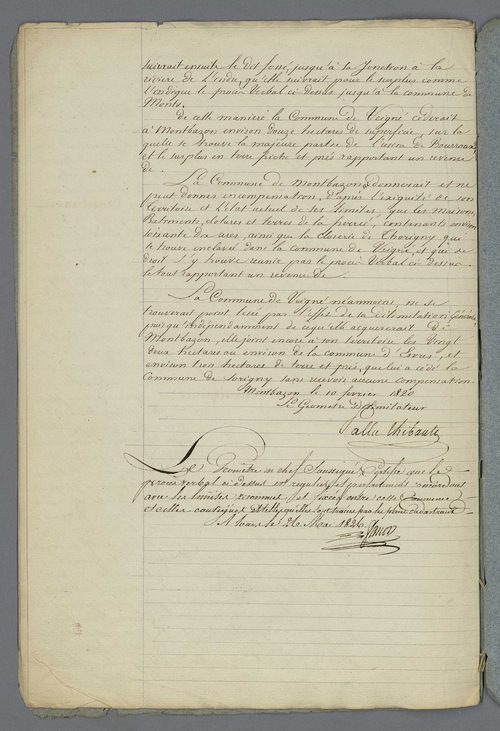 suivrait ensuite le dit fossé, jusqu'à sa Jonction à la
riviere de L'indre, qu'elle suivrait pour le surplus comme
l'indique le procès Verbal ci dessus jusqu'à la commune de
Monts.
de cette maniere la Commune de Veigné céderait
à Montbazon environ douze hectares de superficie, sur la
quelle se trouve la majeure partie de l'
et le surplus en terre friche et prés rapportant un revenu
de .
La Commune de Montbazon donnerait et ne
peut donner en compensation, d'après l'exiguité de son
territoire et l'état actuel de ses limites, que les maisons,
Batiments, clotures et terres de la contenants environ
soixante dix ares, ainsi que la closerie de Thorigny qui
se trouve enclavé dans la commune de Veigné, et qui se
doit s'y trouve reunie par le procès Verbal ci dessus.
le tout rapportant un revenu de .
La Commune de Veigné néanmoins, ne se
trouverait point lésée par l'effet de sa délimitation Générale,
puisqu'indépendamment de ce qu'elle acquererait de
Montbazon, elle joint encore à son territoire les Vingt
deux hectares ou environ de la commune d'Esvres, et
environ trois hectares de terre et prés, que lui a cédé la
Commune de Sorigny sans recevoir aucune compensation.
Montbazon le 10 fevrier 1820
Le Géometre Délimitateur
Salle Thibault
Le Géomètre en chef Soussigné Certifie que le
procès verbal ci dessus est régulier et
avec les limites reconnues et fixées entre cette Commune
et celles contigues et telles qu'elles sont par les plans cadastraux
A tours le 26 Mai 1826